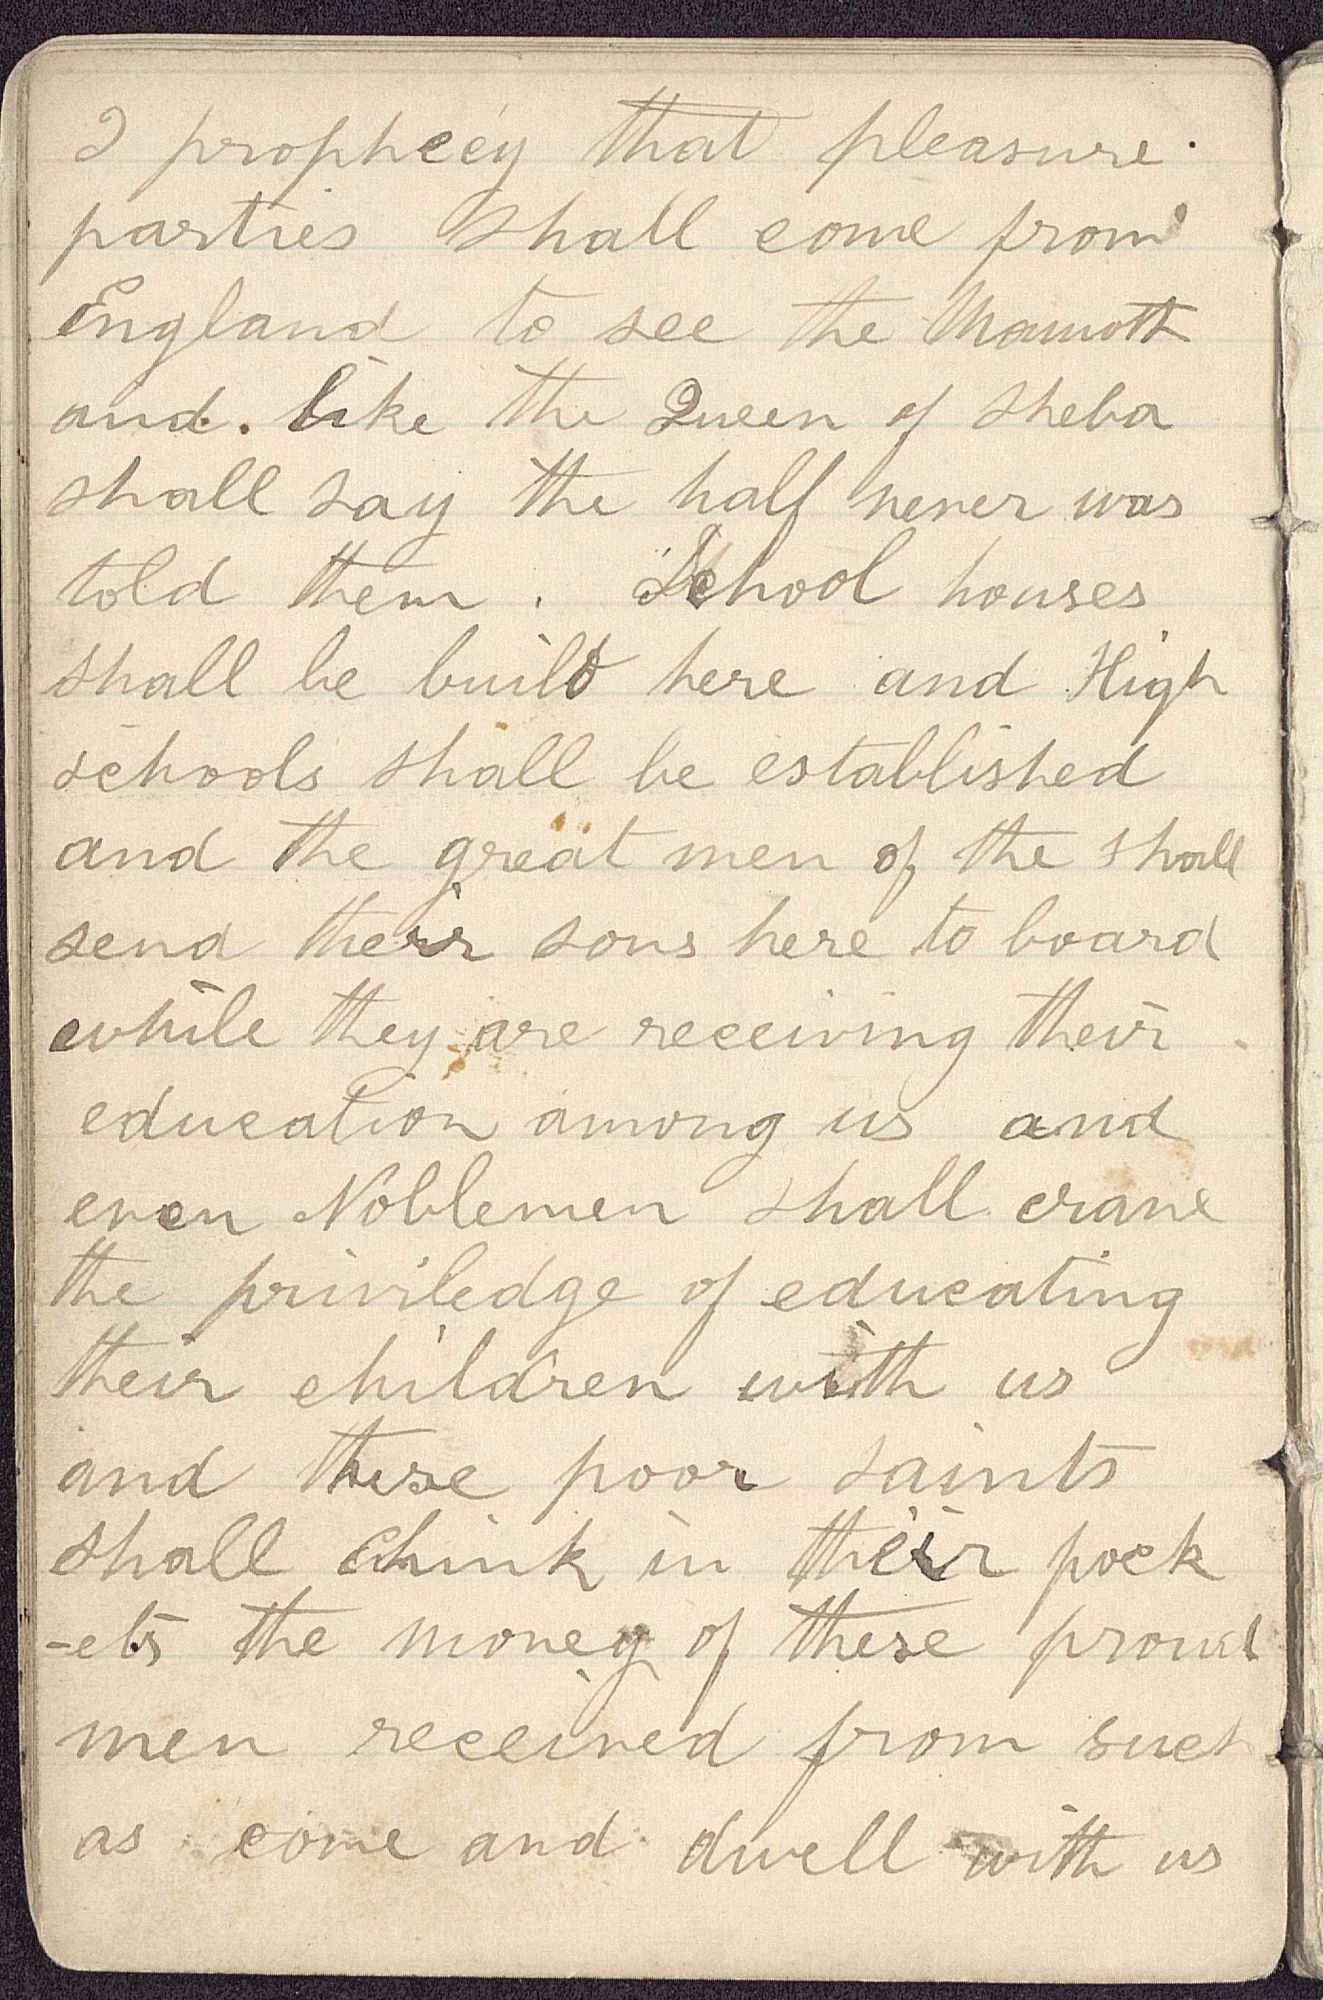 I prophecy that pleasure
parties shall come from
England to see the Mamoth
and. like the Queen of Sheba
shall say the half never was
told them. School houses
shall be built here and High
schools shall be established
and the great men of the shall
send their sons here to board
while they are receiving their
education among us and
even Noblemen shall crave
the priviledge of educating
their children with us
and these poor saints
shall chink in their pock
-ets the money of these proud
men received from such
as come and dwell with us